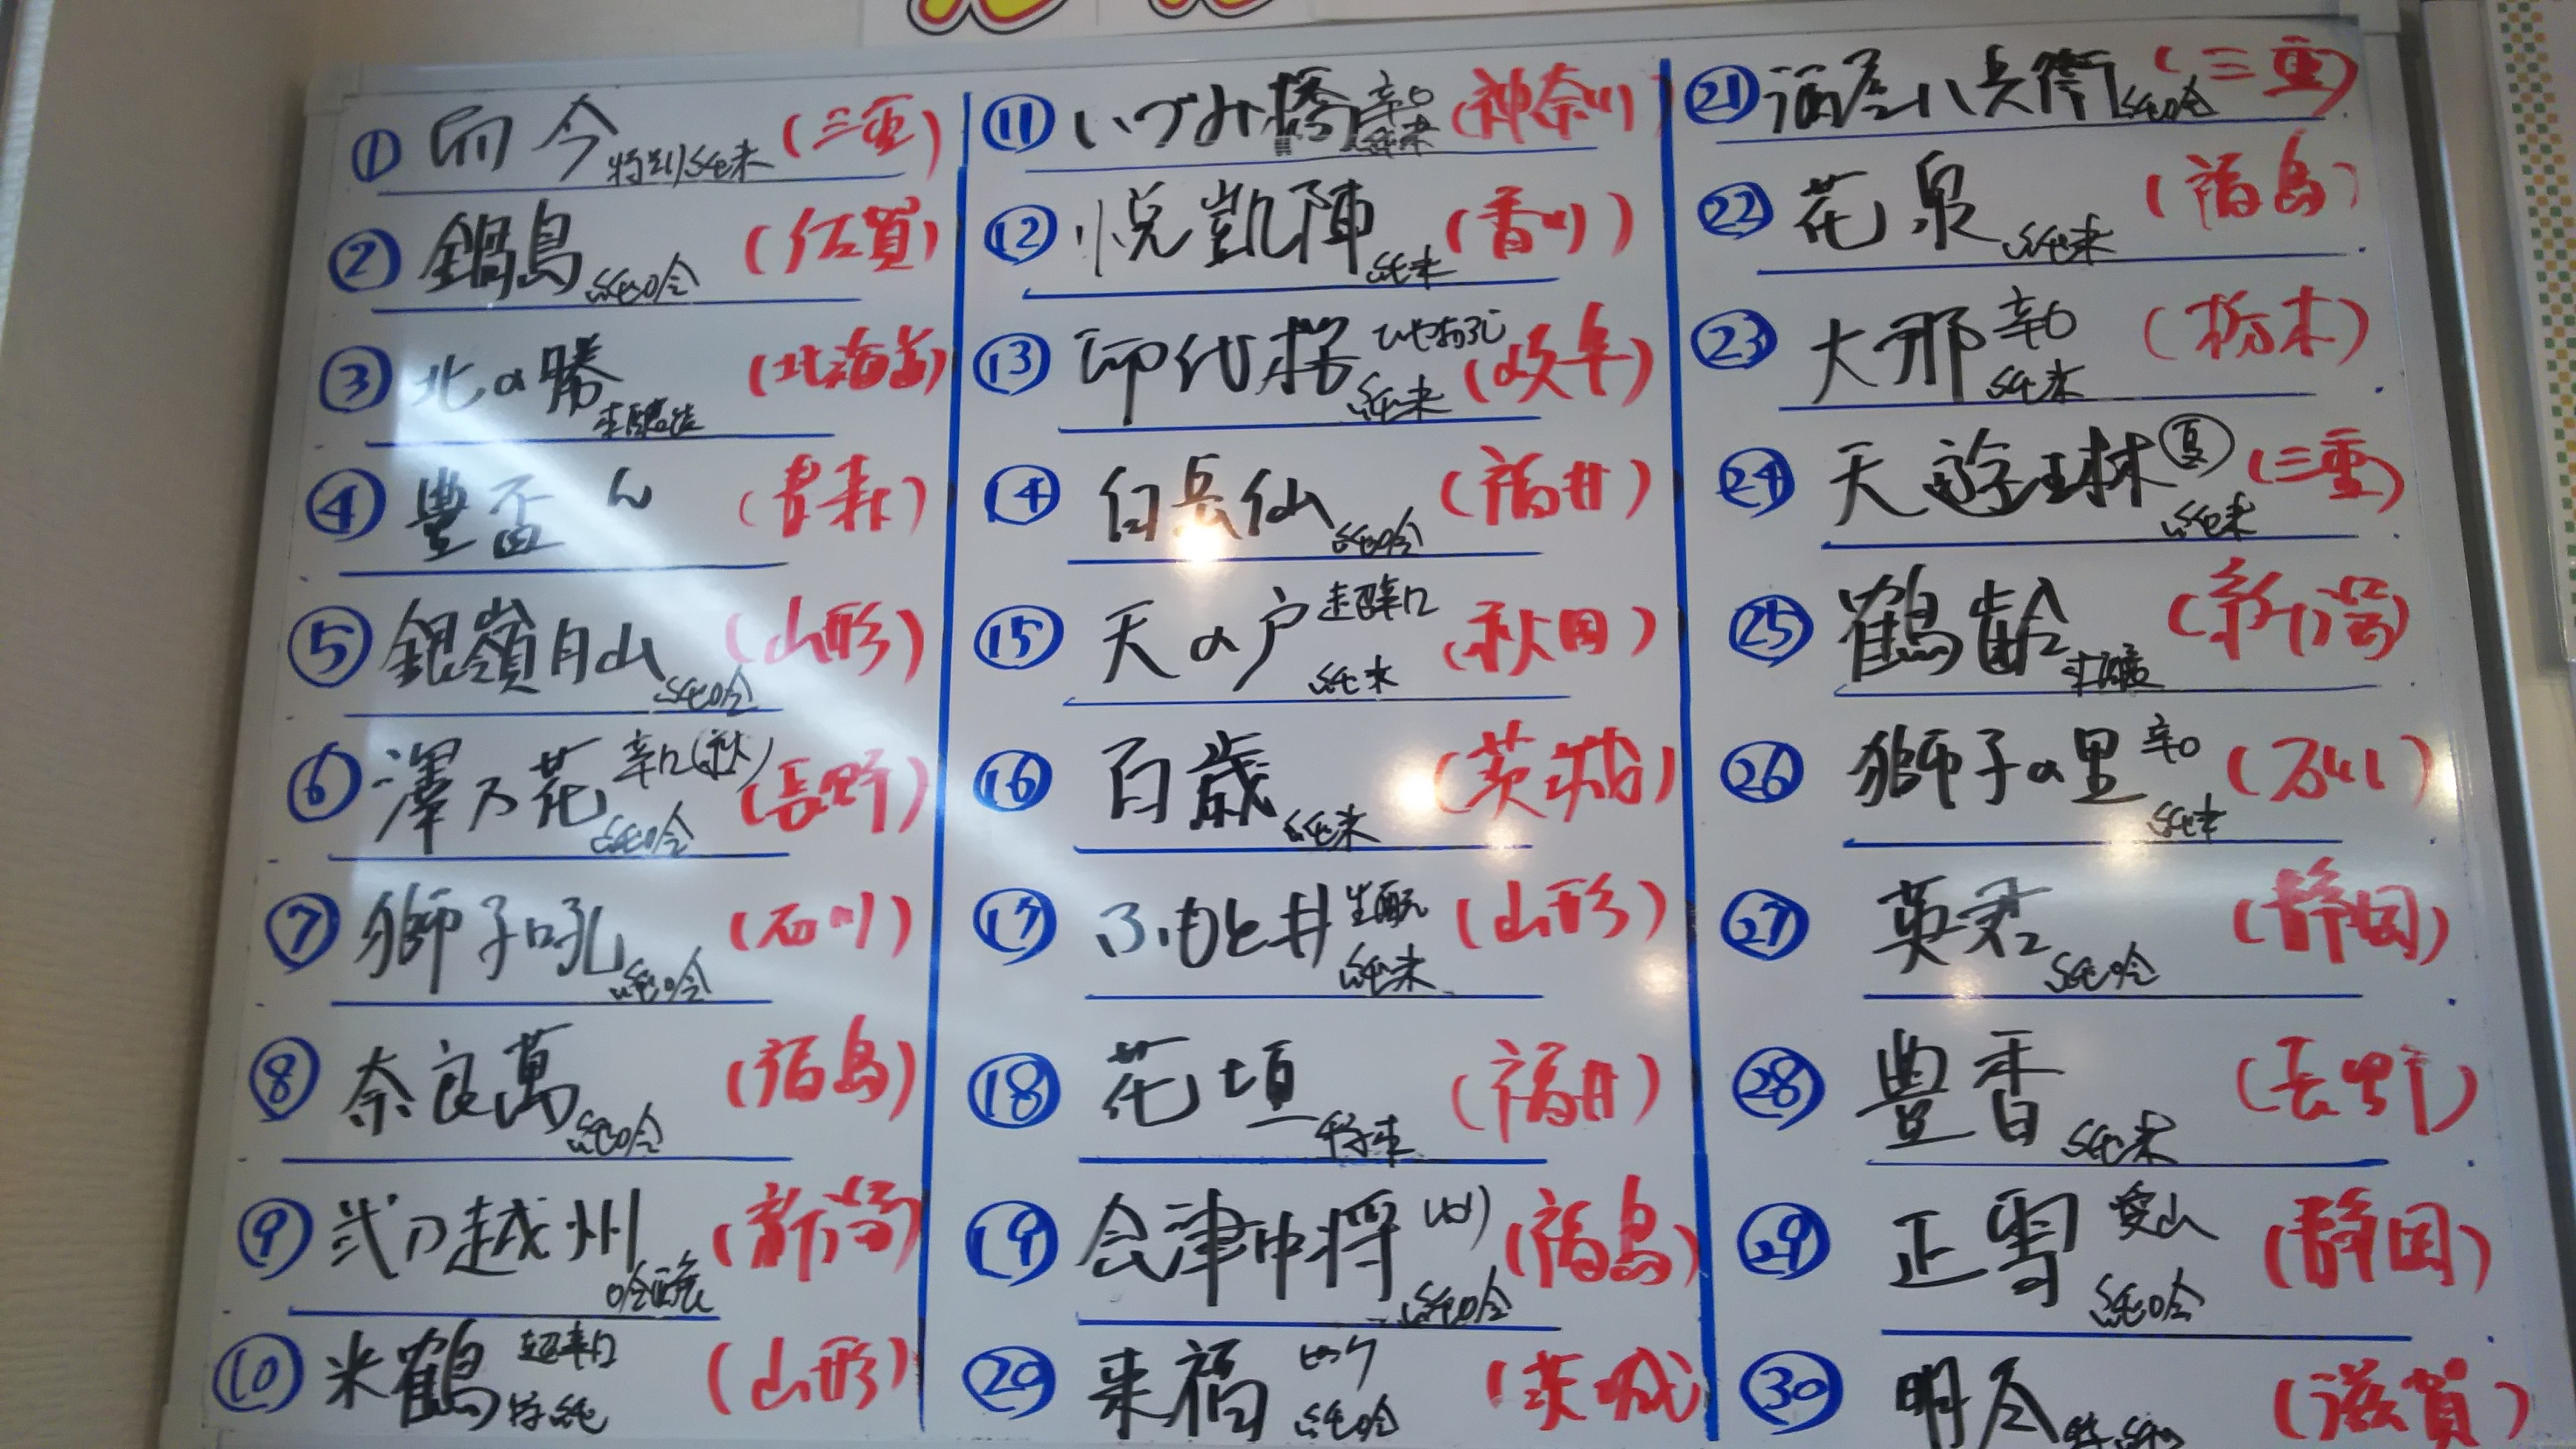 ① 而今 特別純米 (三重)
② 鍋島 純吟 (佐賀)
③ 北の勝 本醸造 (北海道)
④ 豊盃 ん (青森)
⑤ 銀嶺月山 純吟 (山形)
⑥ 澤乃花 辛口(秋) 純吟 (長野)
⑦ 獅子吼 純吟 (石川)
⑧ 奈良萬 純吟 (福島)
⑨ 弐乃越州 吟醸 (新潟)
⑩ 米鶴 超辛口 特純 (山形)
⑪ いづみ橋 辛口 純米 (神奈川)
⑫ 悦凱陣 純米 (香川)
⑬ 御代桜 ひやおろし 純米 (岐阜)
⑭ 白岳仙 純吟 (福井)
⑮ 天の戸 超辛口 純米 (秋田)
⑯ 百歳 純米 (茨城)
⑰ ふもと井 生酛 純米 (山形)
⑱ 花垣 (福井)
⑲ 会津中将 純吟 (福島)
⑳ 来福 純吟 (茨城)
㉑ 酒屋八兵衛 純吟 (三重)
㉒ 花泉 純米 (福島)
㉓ 大那 辛口 純米 (栃木)
㉔ 天遊琳 夏 純米 (三重)
㉕ 鶴齢 本醸 (新潟)
㉖ 獅子の里 辛口 純米 (石川)
㉗ 英君 純吟 (静岡)
㉘ 豊香 純米 (長野)
㉙ 正雪 愛山 純吟 (静岡)
㉚ (滋賀)